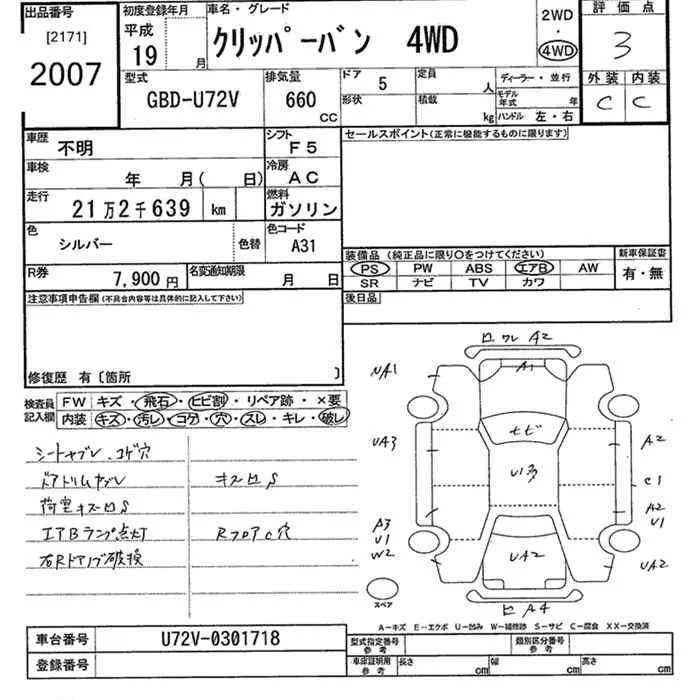 出品番号
[2171]
2007
初度登録年月
平成
19 月
車名・グレード
クリッパーバン 4WD
2WD
・
4WD
評価点
3
外装 内装
C C
型式
GBD-U72V
排気量
660
CC
ドア 5
形状
定員 人
積載 kg
ディーラー・並行
モデル年式 年
ハンドル 左・右
車歴 不明
シフト F5
車検 年 月( 日)
冷房 AC
走行 21万2千639 km
燃料 ガソリン
色 シルバー 色替
色コード A31
R券 7,900円
名変通知期限 月 日
セールスポイント(正常に機能するものに限ります)
装備品 (純正品に限り○をつけてください)
PS PW ABS エアB AW
SR ナビ TV カワ
新車保証書
有・無
後日品
注意事項申告欄(不具合内容等は具体的に記入して下さい)
修復歴 有〔箇所 〕
検査員記入欄
FW キズ・飛石・ヒビ割・リペア跡・×要
内装 キズ・汚レ・コゲ・穴・スレ・キレ・破レ
シートヤブレ、コゲ穴
ドアトリムヤブレ キズロS
荷室キズロS
エアBランプ点灯 RフロアC穴
右Rドアノブ破損
ロ ワレ A2
A1
UA1
ヒビ
UA3
A2
U多
C1
A2
U1
A3
U1
W2
UA2
UA2
ヒ A4
スペア
A－キズ E－エクボ U－凹み W－補修跡 S－サビ C－腐食 XX－交換済
車台番号 U72V-0301718
登録番号
型式指定番号
参考
類別区分番号
参考
車庫証明用
参考
長さ cm
幅 cm
高さ cm